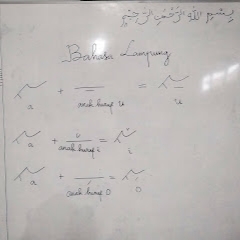 بِسْمِ اللهِ الرَّحْمٰنِ الرَّحِيْمِ
Bahasa Lampung
a + anak huruf u = u
a + anak huruf i = i
a + anak huruf o = o